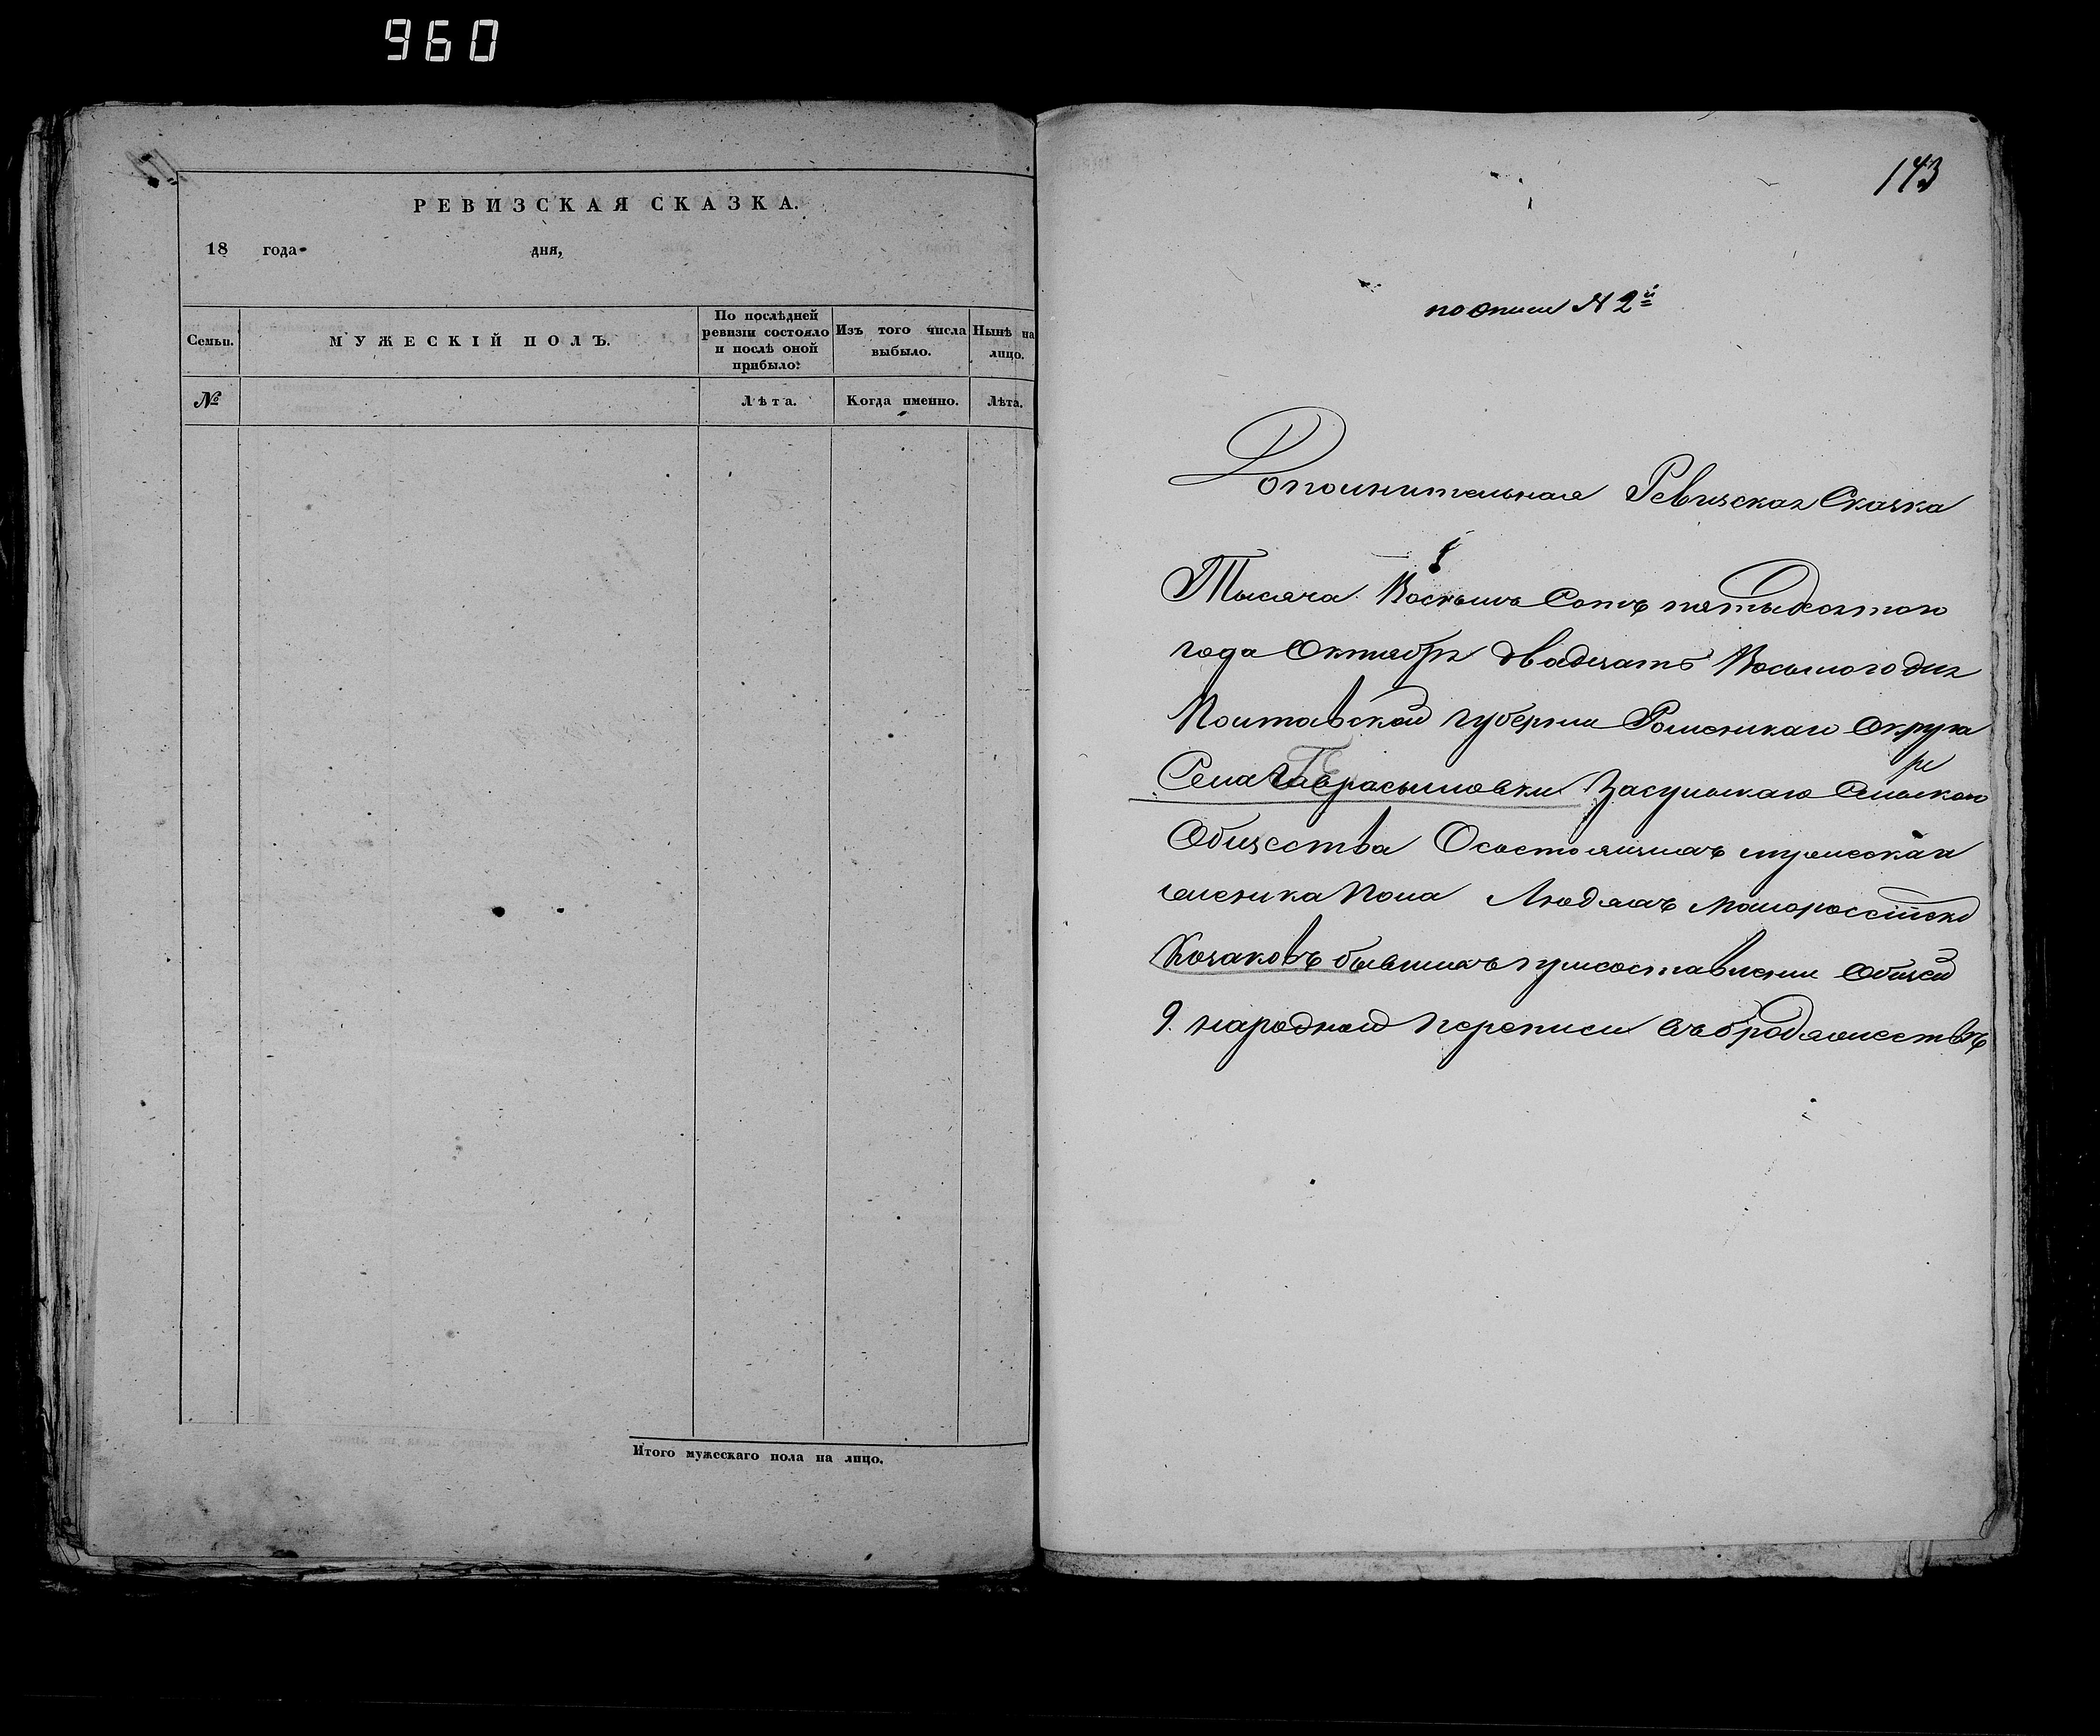 960
РЕВИЗСКАЯ СКАЗКА.
18 года дня,
Семьи.
МУЖЕСКІЙ ПОЛЪ.
По послѣдней
ревизіи состояло
и послѣ оной
прибыло:
Изъ того числа
выбыло.
Нынѣ на
лицо.
№
Лѣта.
Когда именно.
Лѣта.
Итого мужескаго пола на лицо.
143
по описи № 2й
Дополнительная Ревизская Сказка
Тысяча Восемь Сотъ пятьдесятого
года Октября двадцать Восьмого дня
Полтавской губерніи Роменскаго округа
Села Герасимовки Засульскаго Сельскаго
Общества О состоящихъ мужеска и
женска пола Людяхъ малороссійски
Козаковъ бывшихъ присоставленіи Общей
9. народной переписи въ бродяжествѣ